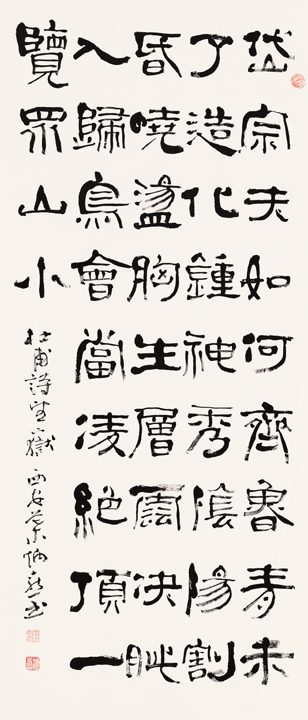 岱宗夫如何齊魯青未
了造化鍾神秀陰陽割
昏曉盪胸生層雲決眦
入歸鳥會當凌絕頂一
覽眾山小
杜甫詩望嶽 西安 書